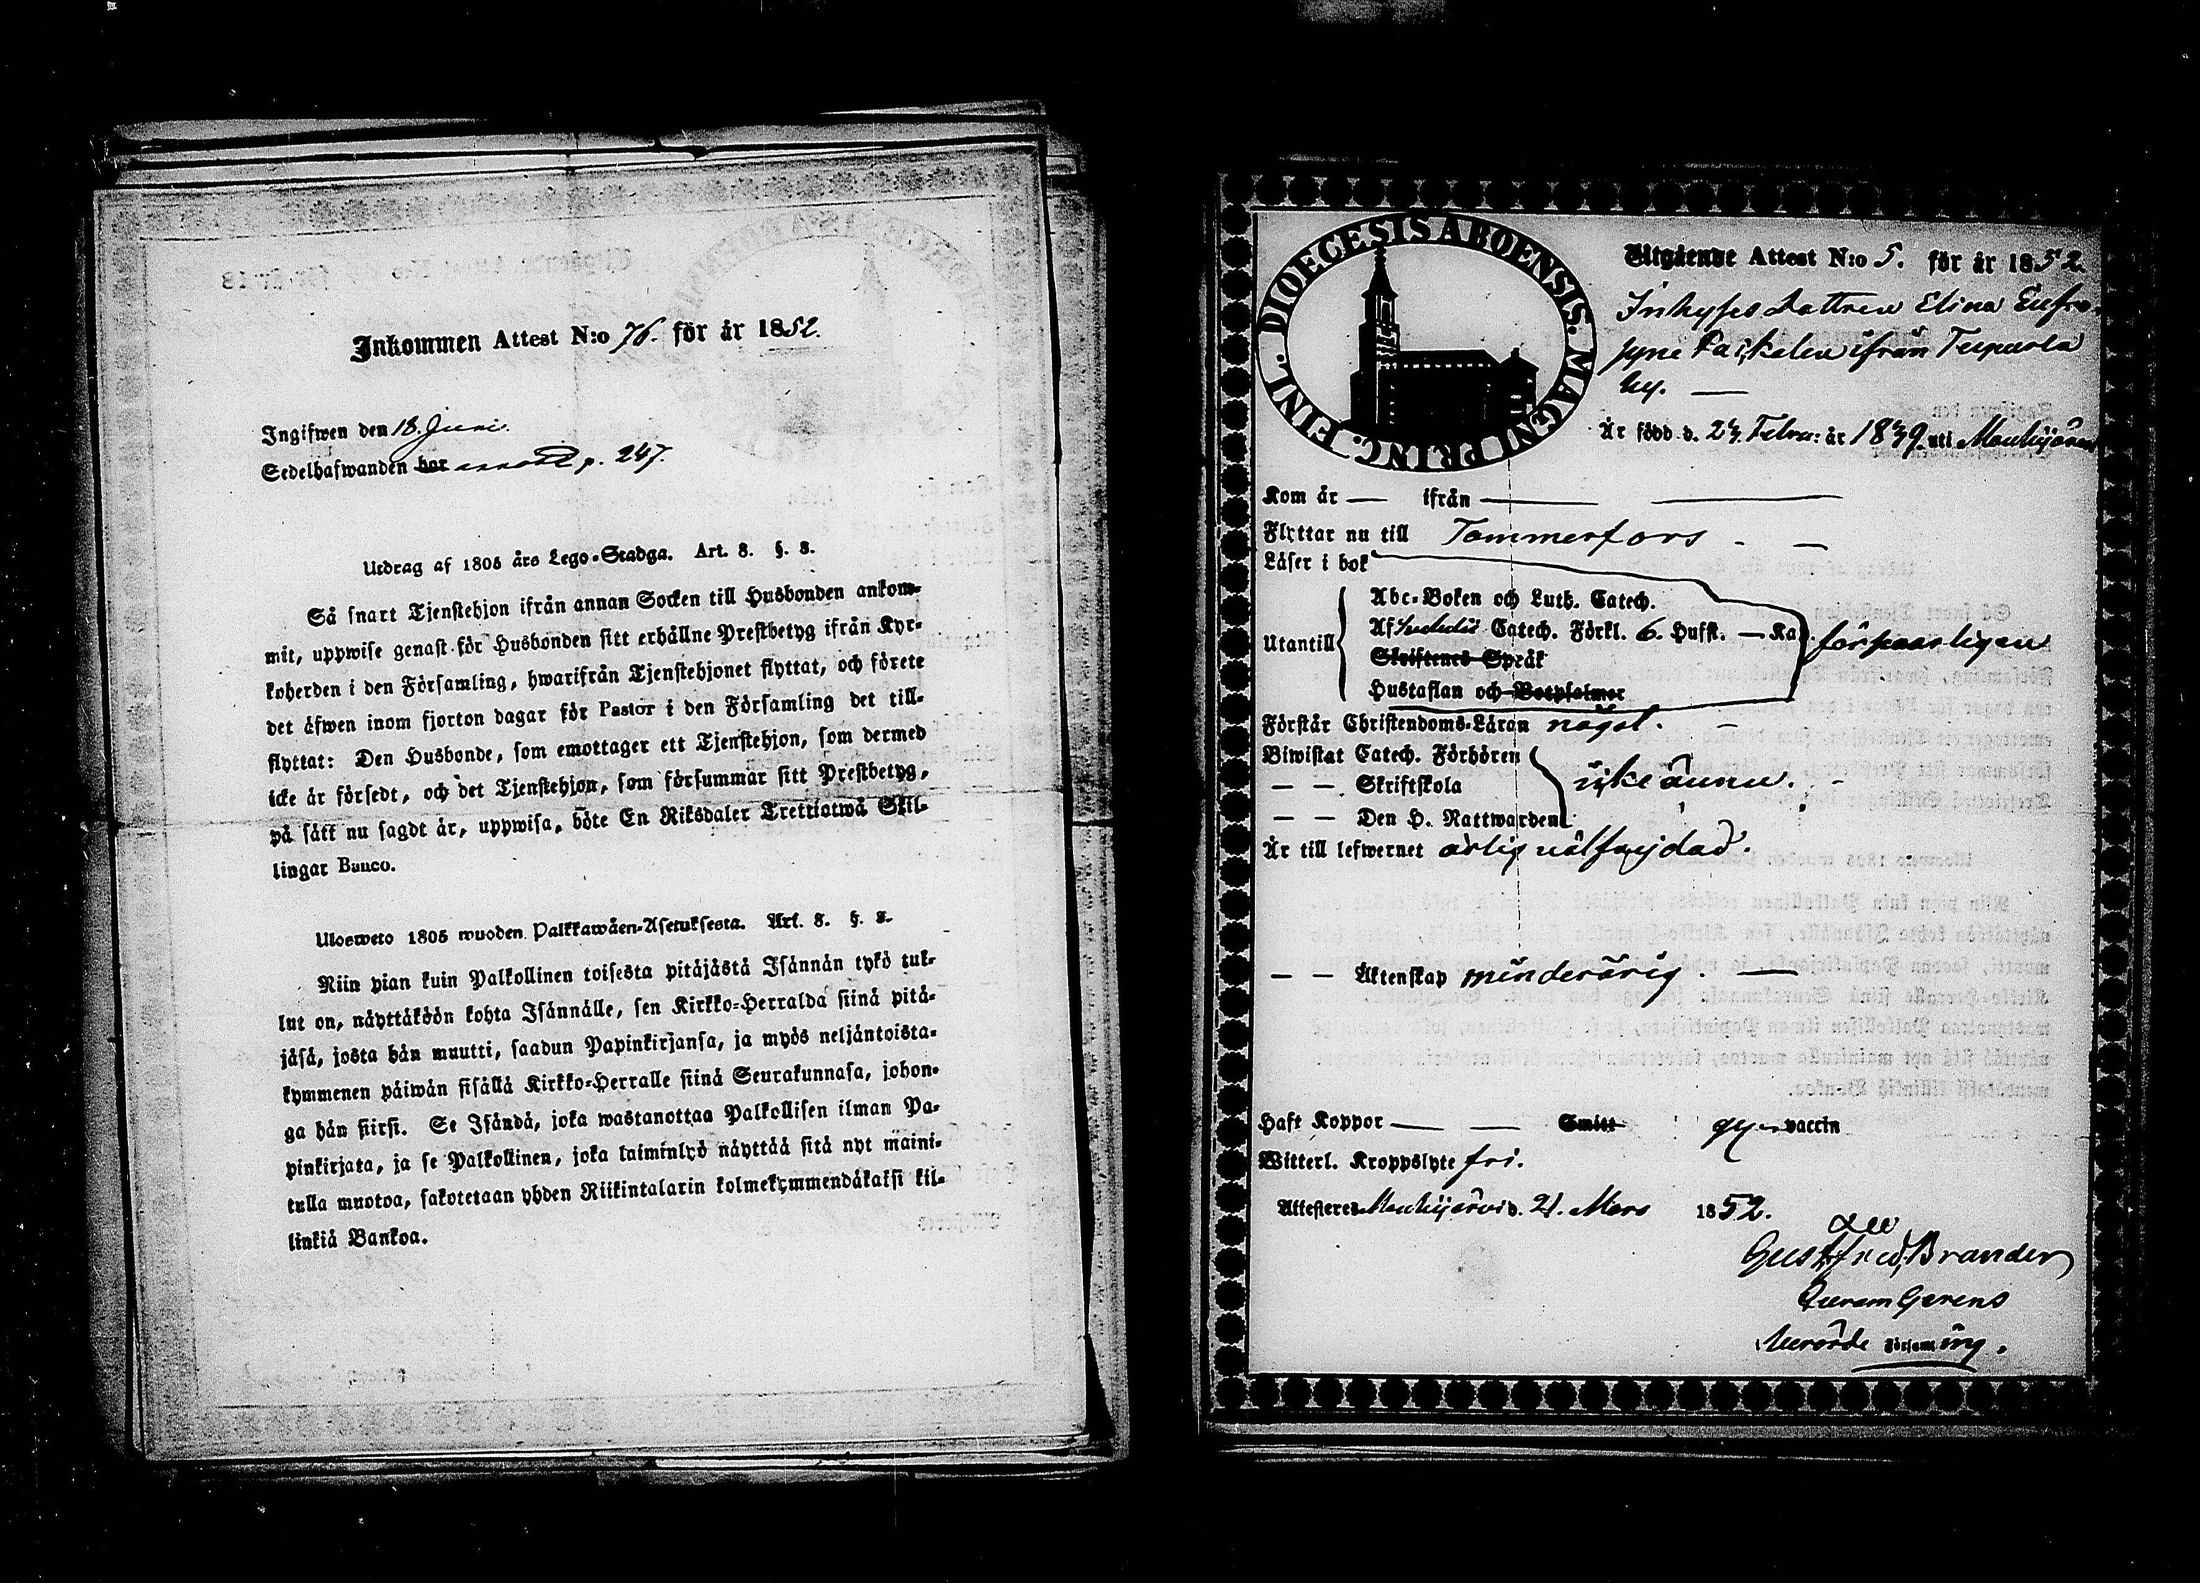 Inkommen Attest N:o 76. för år 1852.
Ingifwen den 18. Juni.
Sedelhafwanden bor p. 247.
Utdrag af 1805 års Lego-Stadga. Art. 8. §. 8.
Så snart Tjenstehjon ifrån annan Socken till Husbonden ankom-
mit, uppwise genast för Husbonden sitt erhållne Prestbetyg ifrån Kyr-
koherden i den Församling, hwarifrån Tjenstehjonet flyttat, och förete
det äfwen inom fjorton dagar för Pastor i den Församling det till-
flyttat: Den Husbonde, som emottager ett Tjenstehjon, som dermed
icke är försedt, och det Tjenstehjon, som försummar sitt Prestbetyg,
på sätt nu sagdt är, uppwisa, böte En Riksdaler Trettiotwå Skil-
lingar Banco.
Ulosweto 1805 wuoden Palkkawäen-Asetuksesta. Art. 8. §. 8.
Niin pian kuin Palkollinen toisesta pitäjästä Isännän tykö tul-
lut on, näyttäköön kohta Isännälle, sen Kirkko-Herralda siinä pitä-
jäsä, josta hän muutti, saadun Papinkirjansa, ja myös neljäntoista-
kymmenen päiwän sisällä Kirkko-Herralle siinä Seurakunnasa, johon-
ga hän siirsi. Se Isändä, joka wastanottaa Palkollisen ilman Pa-
pinkirjata, ja se Palkollinen, joka laiminlyö näyttää sitä nyt maini-
tulla muotoa, sakotetaan yhden Riikintalarin kolmekymmendäkaksi kil-
linkiä Bankoa.
FINL. DIOECESIS ABOENSIS. MAGNI PRINC.
Utgående Attest N:o 5. för år 1852.
Inhyses dottren Elina Eufro-
syne ifrån
by.
År född d. 24 Febru: år 1839 uti Mouhijärvi
Kom år — ifrån —
Flyttar nu till Tammerfors
Läser i bok
Abc-Boken och Luth. Catech.
Utantill Af Catech. Förkl. 6. Hufst. — Kap. försvarligen
Skriftenes Språk
Hustaflan och Botpsalmer
Förstår Christendoms-Läran något.
Biwistat Catech. Förhören
— — Skriftskola icke ännu.
— — Den H. Nattwarden
Är till lefwernet ärlig välfrejdad.
— — Äktenskap minderårig.
Haft Koppor — — Smitt vaccin
Witterl. Kroppslyte fri.
Attesteres Mouhijärvi d. 21. Mars 1852.
Gust. Fred. Brander
Curam Gerens
Församling.